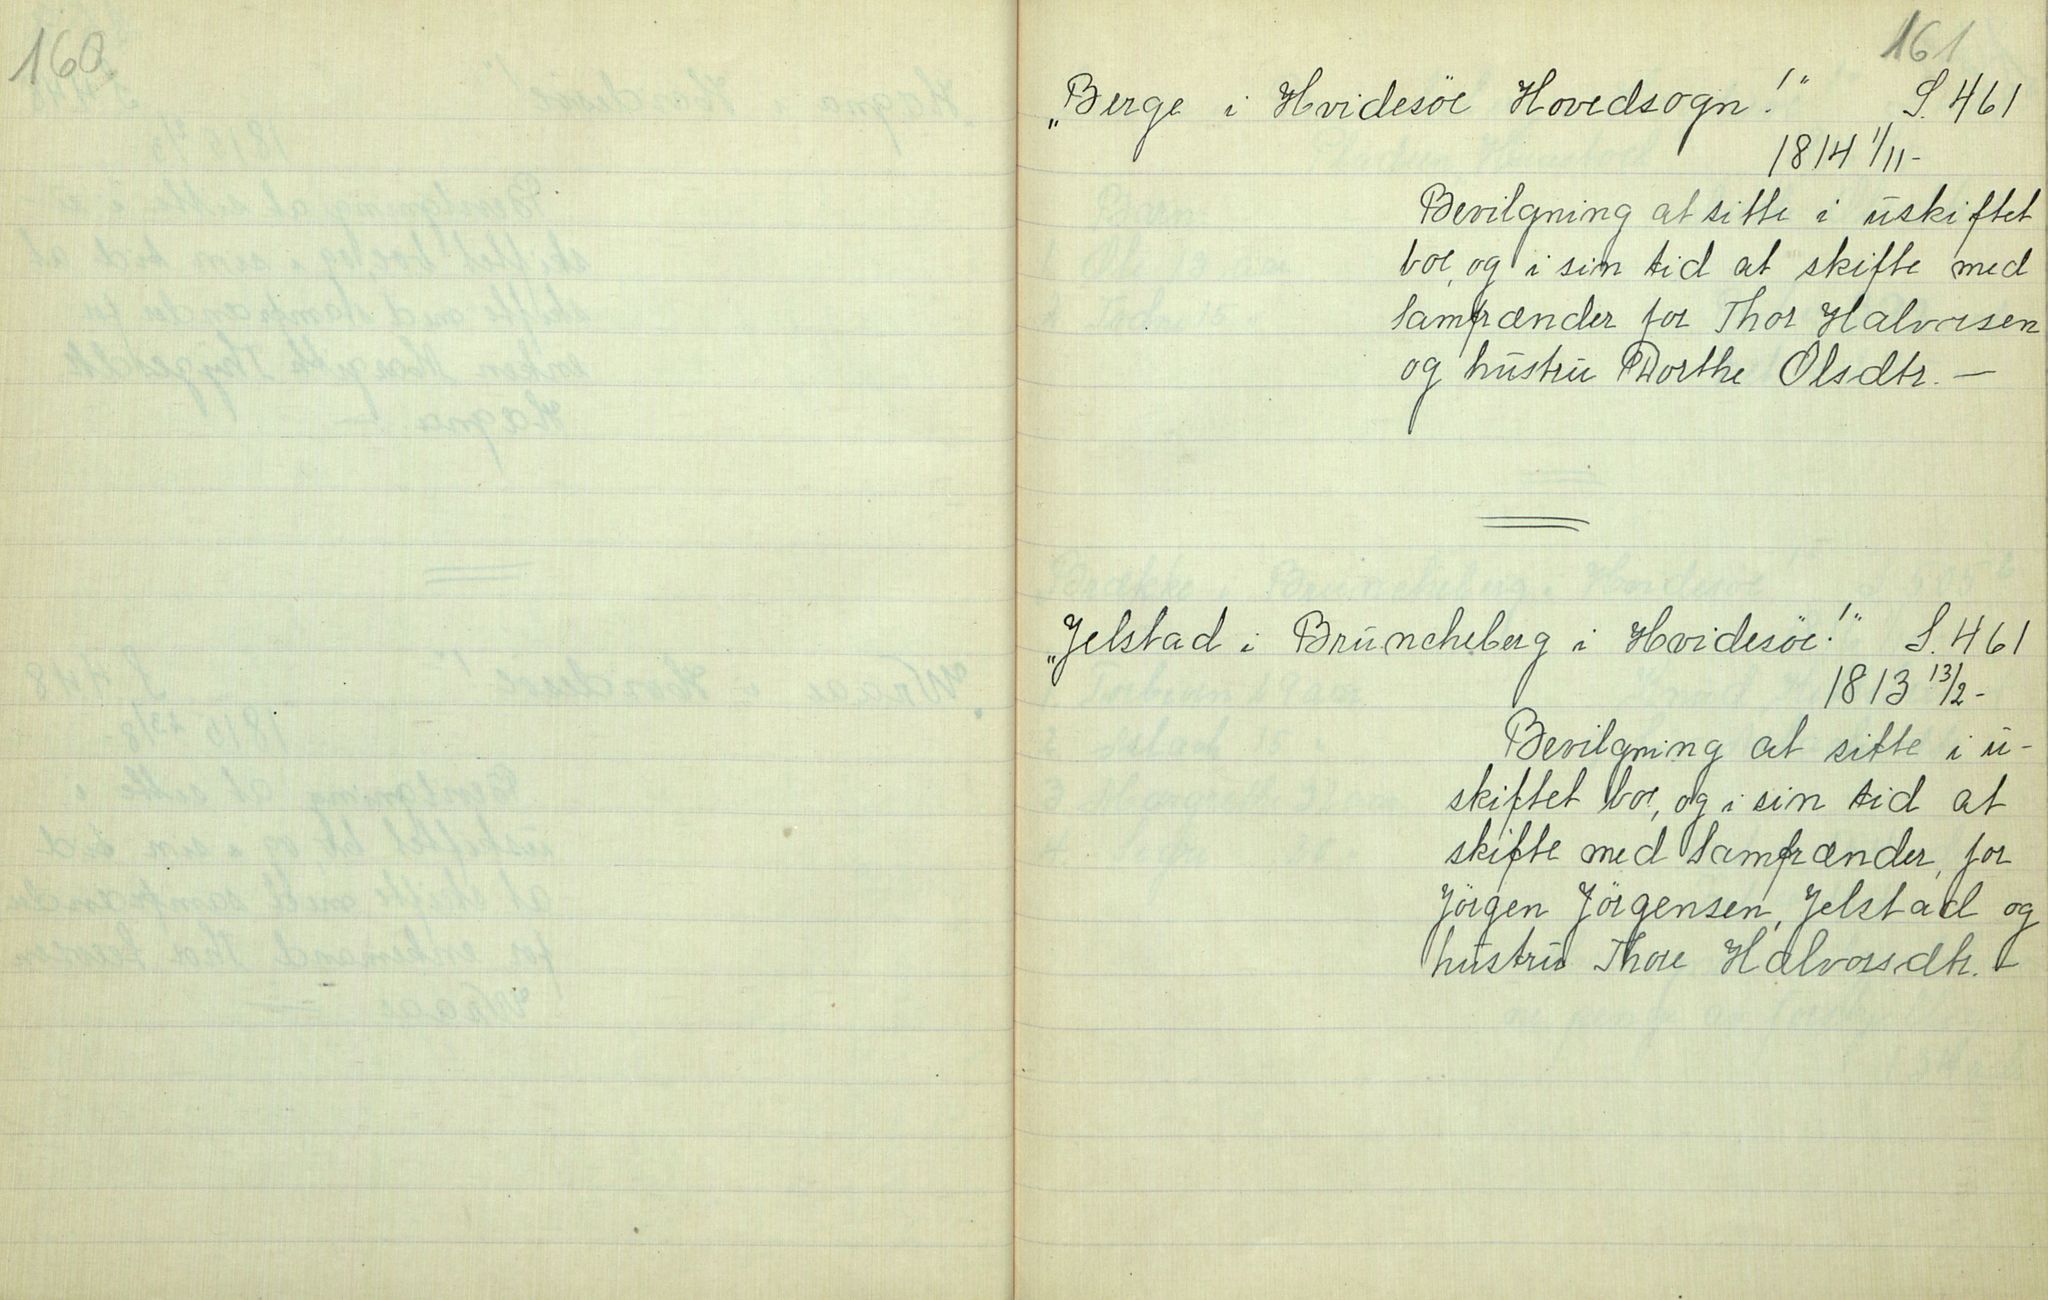 160
161
„Berge i Hvidesöe Hovedsogn!" S. 461
1814 1/11-
Bevilgning at sitte i uskiftet
boe, og i sin tid at skifte med
Samfrænder for Thor Halvorsen
og hustru Dorthe Olsdtr. —
„Jelstad i Bruncheberg i Hvidesöe!" S. 461
1813 13/2-
Bevilgning at sitte i u-
skiftet boe, og i sin tid at
skifte med Samfrænder, for
Jörgen Jörgensen, Jelstad og
hustru Thore Halvorsdtr. -